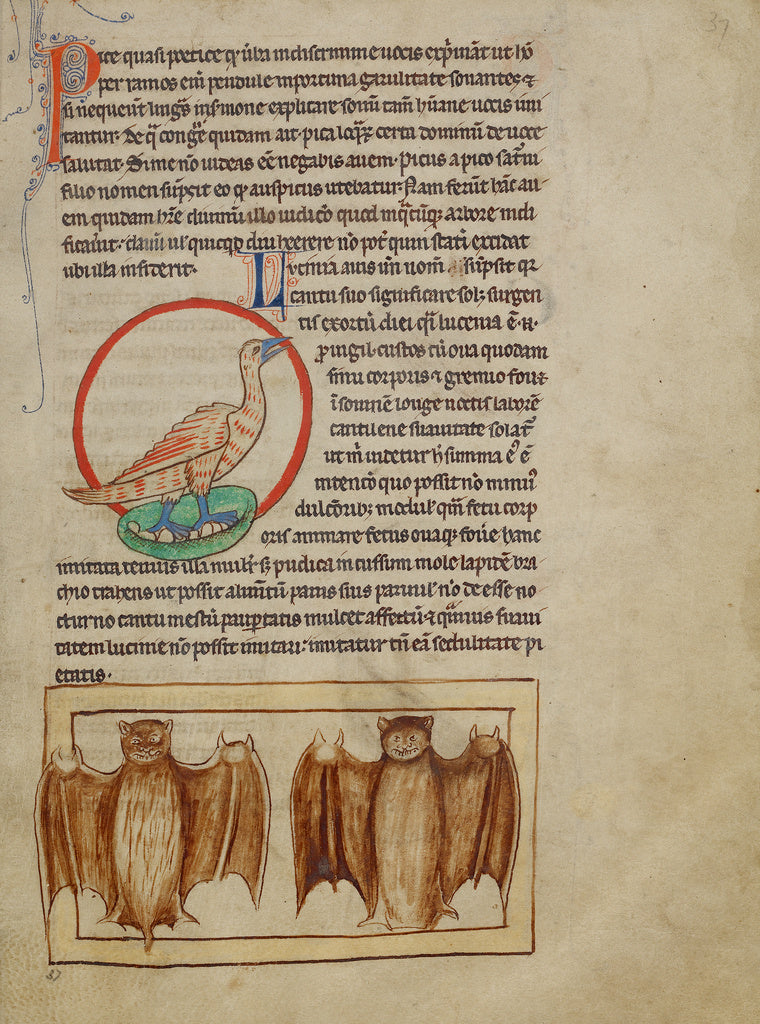 37
Pice quasi poetice qꝛ úba indiscrimine uocis exp̃mãt ut hõ
per ramos enĩ pendule inportuna garulitate sonantes ⁊
si nequeũt linguã in sermone explicare sonũ tam̃ hũane uocis imi
tantur. De q̃ congrue quidam ait. pica loquax certa dominũ de uoce
salutat. Si me nõ uideas eẽ negabis auem. Picus a pico sat̃ni
filio nomen sũpsit eo qꝫ auspiciis utebatur. Nam ferũt hãc au
em quidam hr̃e diuinũ illo iudicio quod in q̃cũqꝫ arbore nidi
ficauit. clauũ ul̃ quicquid diu herere nõ pot̃ quin statĩ excidat
ubi illa insiderit.
Lucinia auis im̃ nom̃ sũpsit qꝛ
cantu suo significare solꝫ surgen
tis exortũ diei q̃i lucenia ẽ. H.
ꝑuigil custos cũ oua quodam
sinu corporis ⁊ gremio fouꝫ
ĩsomnẽ longe noctis laborẽ
cantilene suauitate solat᷑
ut m̃ uidetur h̃ summa ẽ eĩ
intencõ quo possit nõ minus
dulcioribꝫ modul̃ quã fetu corp
oris animare fetus ouaqꝫ foue hanc
imitata tenuis illa mulĩ sꝫ pudica in cussum mole lapidẽ bra
chio trahens ut possit alimtũ panis suis paruul̃ nõ de esse no
cturno cantu mestũ paup̱tatis mulcet affectũ ⁊ quãuis suaui
tatem lucinie nõ possit imitari. imitatur tñ eã sedulitate pi
etatis.
37